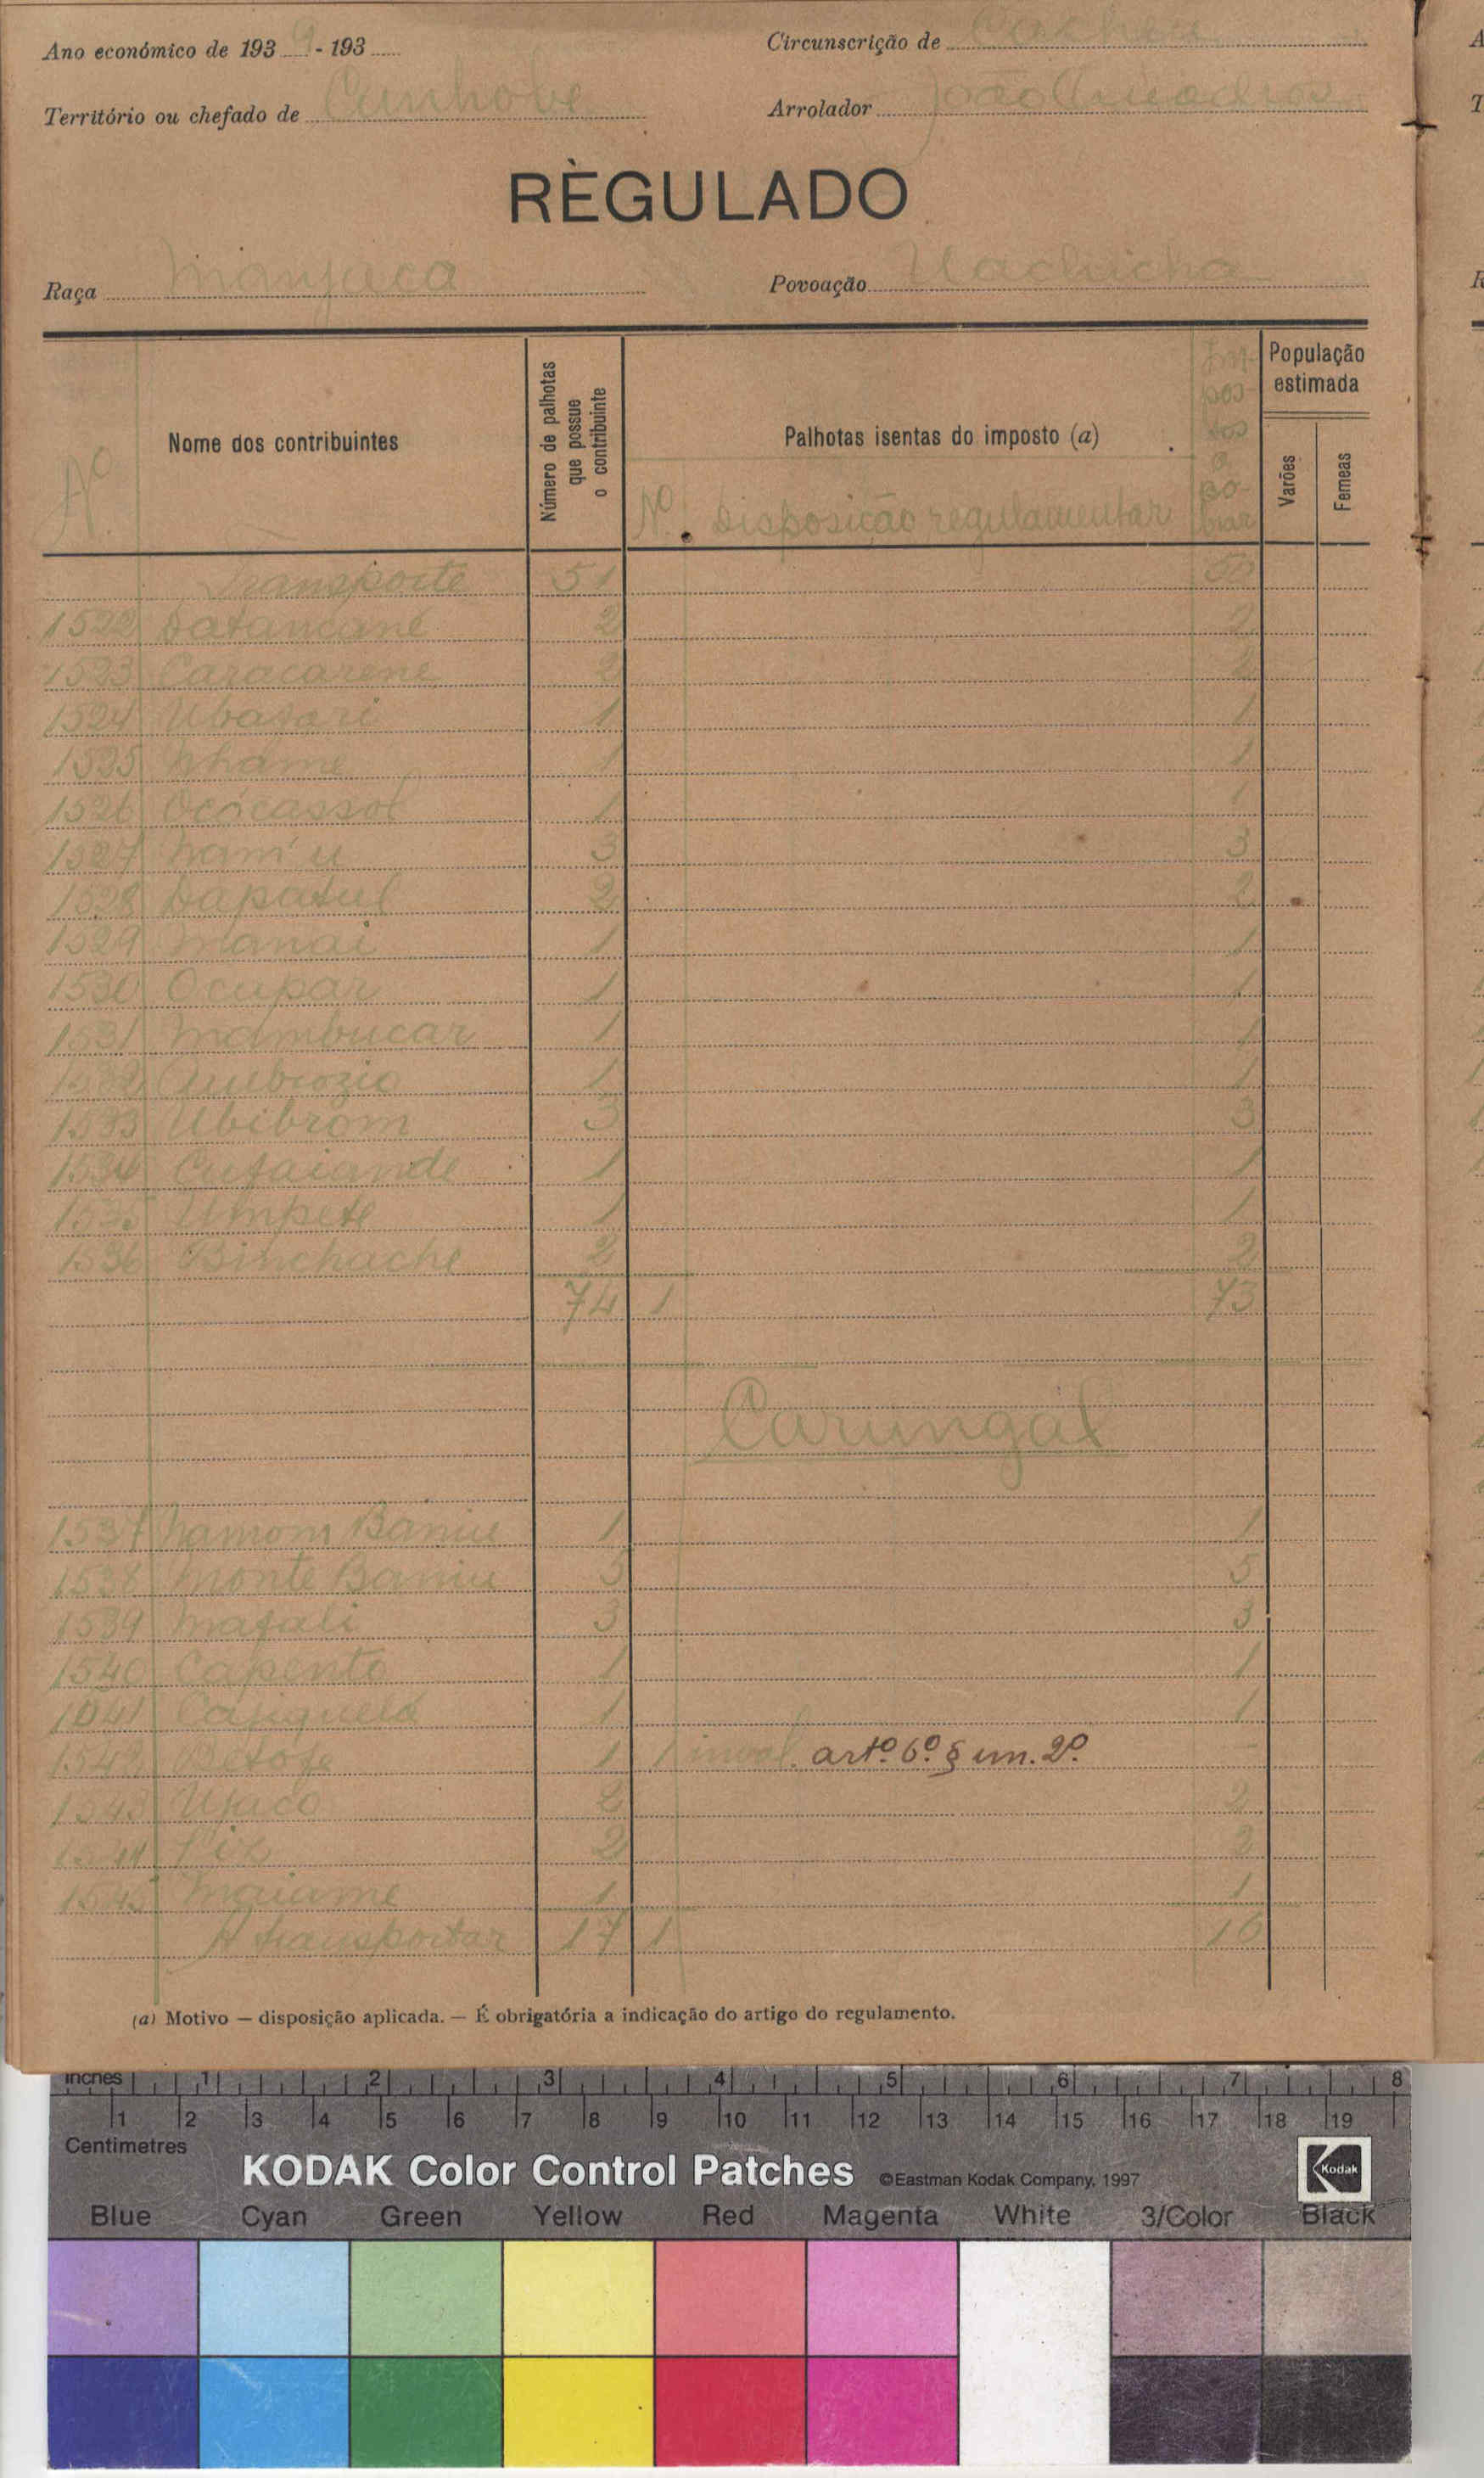 Ano económico de 1939 - 193
Circunscrição de Cacheu
Território ou chefado de Canhobe
Arrolador João
RÈGULADO
Raça Manjaca
Povoação
Nº
Nome dos contribuintes
Número de palhotas que possue o contribuinte
Palhotas isentas do imposto (a)
Nº Disposição regulamentar
Impostos a cobrar
População estimada
Varões
Femeas
Transporte 51
1522 Datancane 2 2
1523 Caracarene 2 2
1524 1 1
1525 Nhame 1 1
1526 Ocócassol 1 1
1527 Nam'u 3 3
1528 Dapatul 2 2
1529 Manai 1 1
1530 Ocupar 1 1
1531 Mambucar 1 1
1532 Ambrozio 1 1
1533 Ubibrom 3 3
1534 Cutaiande 1 1
1535 Umpete 1 1
1536 Binchache 2 2
74 1 73
Carungal
1537 Namom Baniu 1 1
1538 Monte Baniu 5 5
1539 Mafali 3 3
1540 Capento 1 1
1041 1 1
1542 Betofe 1 1 inval. artº 6º § un. 2º -
1543 Ujaco 2 2
1544 2 2
1545 Maiame 1 1
A transportar 17 1 16
(a) Motivo — disposição aplicada. — É obrigatória a indicação do artigo do regulamento.
Inches 1 2 3 4 5 6 7 8
1 2 3 4 5 6 7 8 9 10 11 12 13 14 15 16 17 18 19
Centimetres
KODAK Color Control Patches ©Eastman Kodak Company, 1997 Kodak
Blue Cyan Green Yellow Red Magenta White 3/Color Black